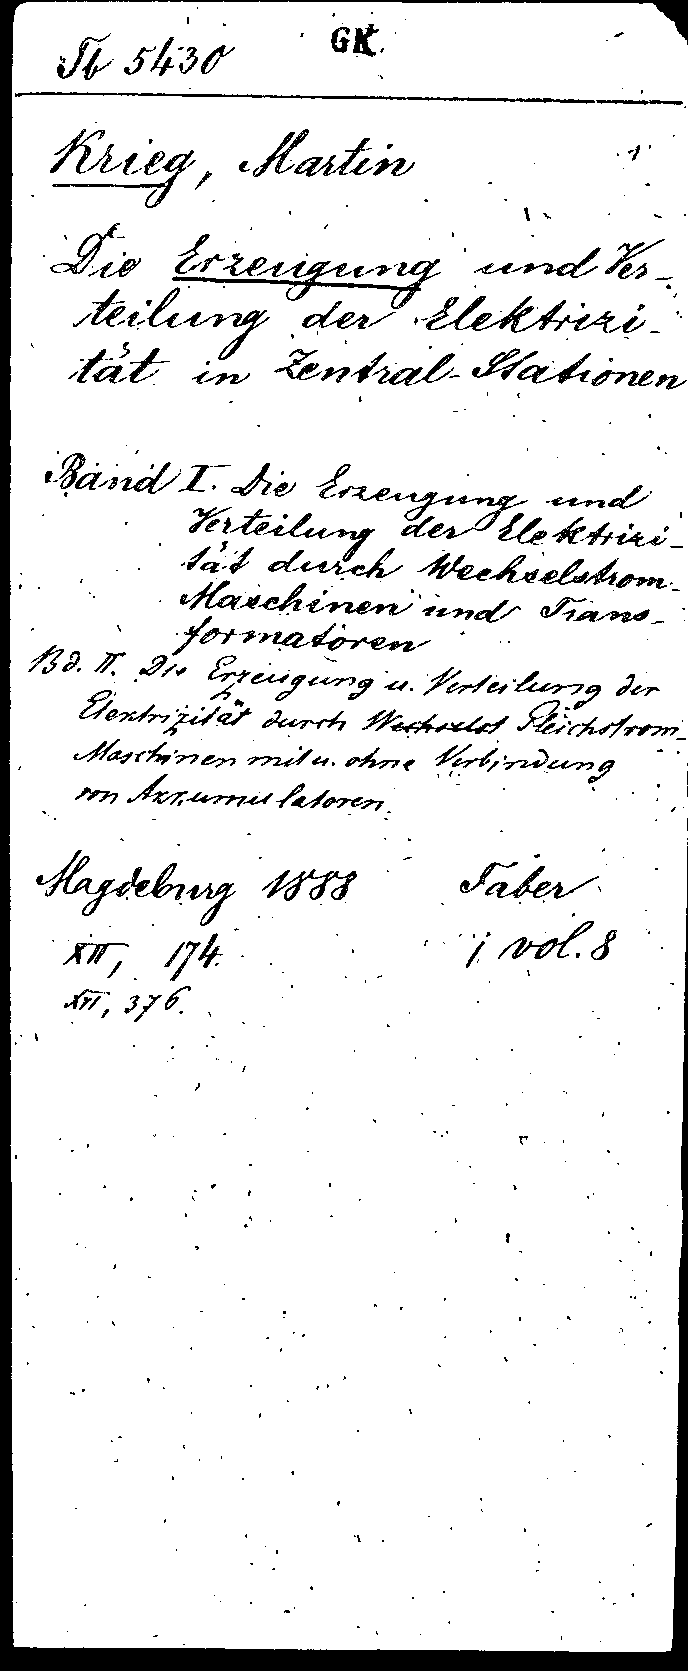 Tb 5430
GK.
Krieg, Martin
Die Erzeugung und Ver-
teilung der Elektrizi-
tät in Zentral-Stationen
Band I. Die Erzeugung und
Verteilung der Elektrizi-
tät durch Wechselstrom-
Maschinen und Trans-
formatoren
Bd. II. Die Erzeugung u. Verteilung der
Elektrizität durch Wechselst Gleichstrom-
Maschinen mit u. ohne Verbindung
von Akkumulatoren.
Magdeburg 1888 Faber
XII, 174. 1 vol. 8
XII, 376.